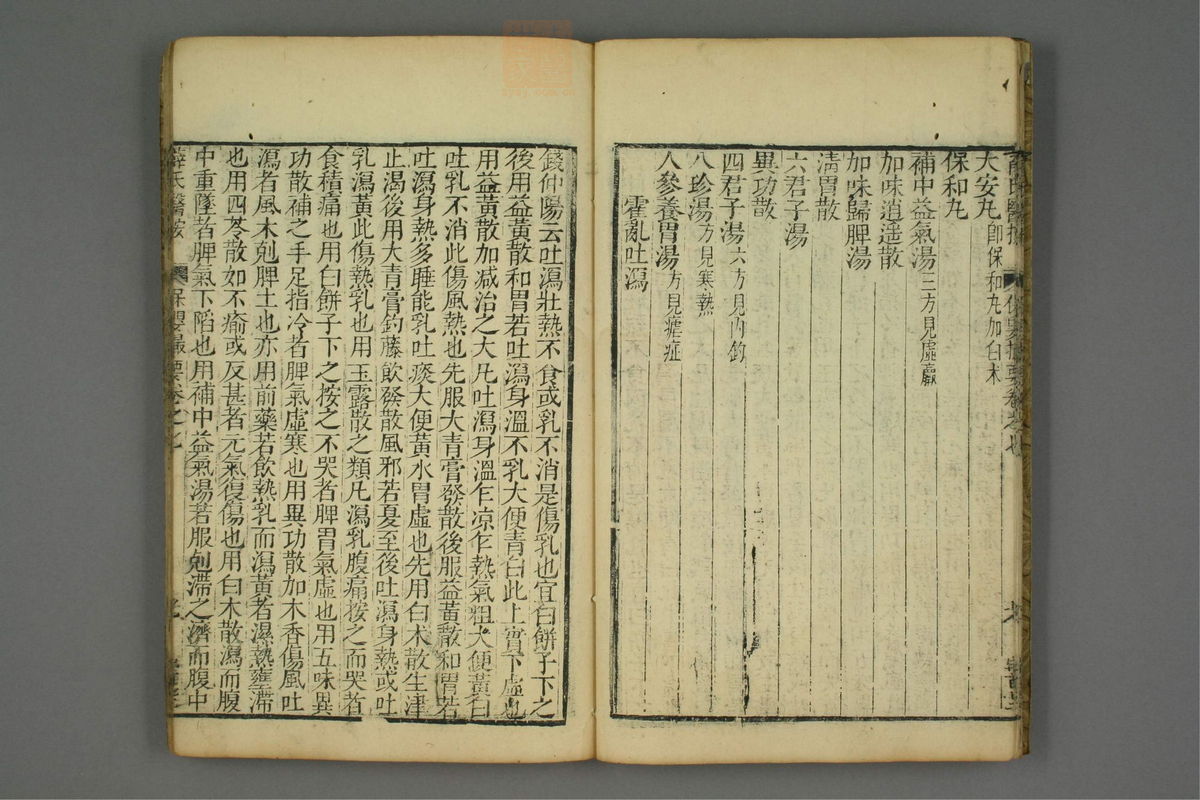 大安丸即保和丸加白朮
保和丸
補中益氣湯三方見虛羸
加味逍遥散
加味歸脾湯
清胃散
六君子湯
異功散
四君子湯六方見内釣
八珍湯方見寒熱
人參養胃湯方見瘧症
霍亂吐瀉
錢仲陽云吐瀉壯熱不食或乳不消是傷乳也宜白餅子下之
後用益黃散和胃若吐瀉身溫不乳大便青白此上實下虛也
用益黃散加減治之大凡吐瀉身溫乍凉乍熱氣粗大便黃白
吐乳不消此傷風熱也先服大青膏發散後服益黃散和胃若
吐瀉身熱多睡能乳吐痰大便黃水胃虛也先用白朮散生津
止渴後用大青膏釣藤飲發散風邪若夏至後吐瀉身熱或吐
乳瀉黃此傷熱乳也用玉露散之類凡瀉乳腹痛按之而哭者
食積痛也用白餅子下之按之不哭者脾胃氣虛也用五味異
功散補之手足指冷者脾氣虛寒也用異功散加木香傷風吐
瀉者風木剋脾土也亦用前藥若飲熱乳而瀉黃者濕熱壅滯
也用四苓散如不瘉或反甚者元氣復傷也用白朮散瀉而腹
中重墜者脾氣下陷也用補中益氣湯若服剋滯之濟而腹中
薛氏醫按 保嬰撮要卷之七